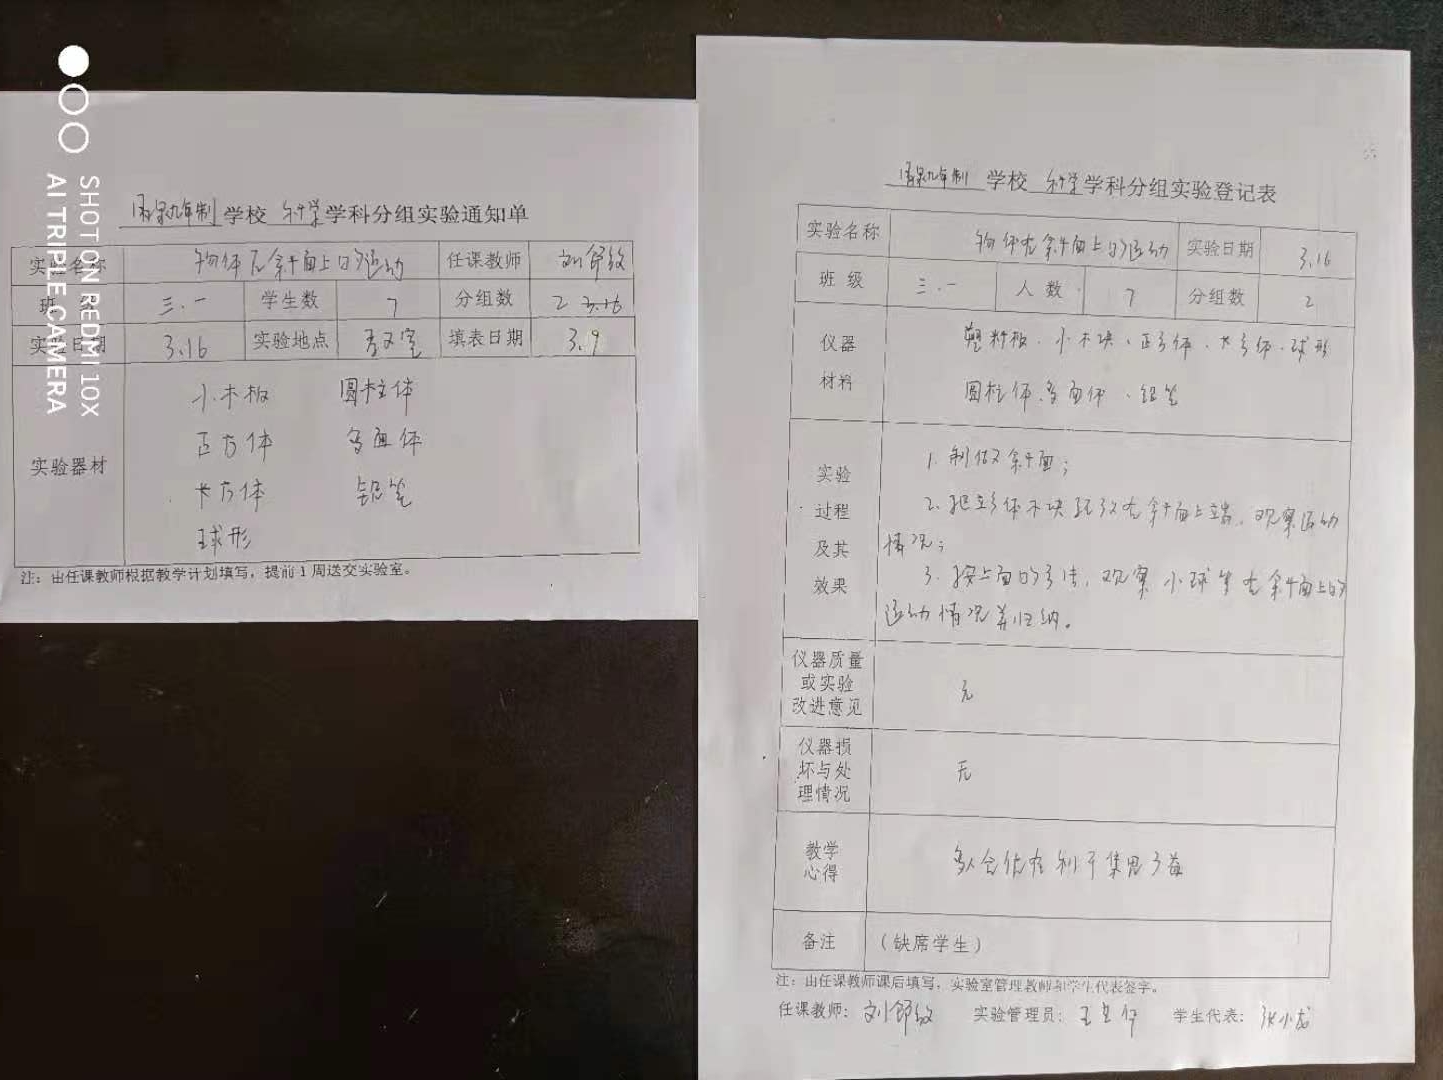 九年制 学校 科学 学科分组实验通知单
实验名称 物体在斜面上的运动 任课教师 刘舒纹
班 级 三.一 学生数 7 分组数 2
实验日期 3.16 实验地点 室 填表日期 3.9
实验器材
小木板 圆柱体
正方体 多面体
长方体 铅笔
球形
注：由任课教师根据教学计划填写，提前1周送交实验室。
九年制 学校 科学 学科分组实验登记表
实验名称 物体在斜面上的运动 实验日期 3.16
班 级 三.一 人 数 7 分组数 2
仪器材料 塑料板、小木块、正方体、长方体、球形
圆柱体、多面体、铅笔
实验过程及其效果
1. 制做斜面；
2. 把立方体木块轻放在斜面上端，观察运动
情况；
3. 按上面的方法，观察小球等在斜面上的
运动情况并归纳。
仪器质量或实验改进意见 无
仪器损坏与处理情况 无
教学心得 多人合作有利于集思广益
备注 （缺席学生）
注：由任课教师课后填写，实验室管理教师和学生代表签字。
任课教师：刘舒纹 实验管理员：王 学生代表：张小龙
SHOT ON REDMI 10X
AI TRIPLE CAMERA